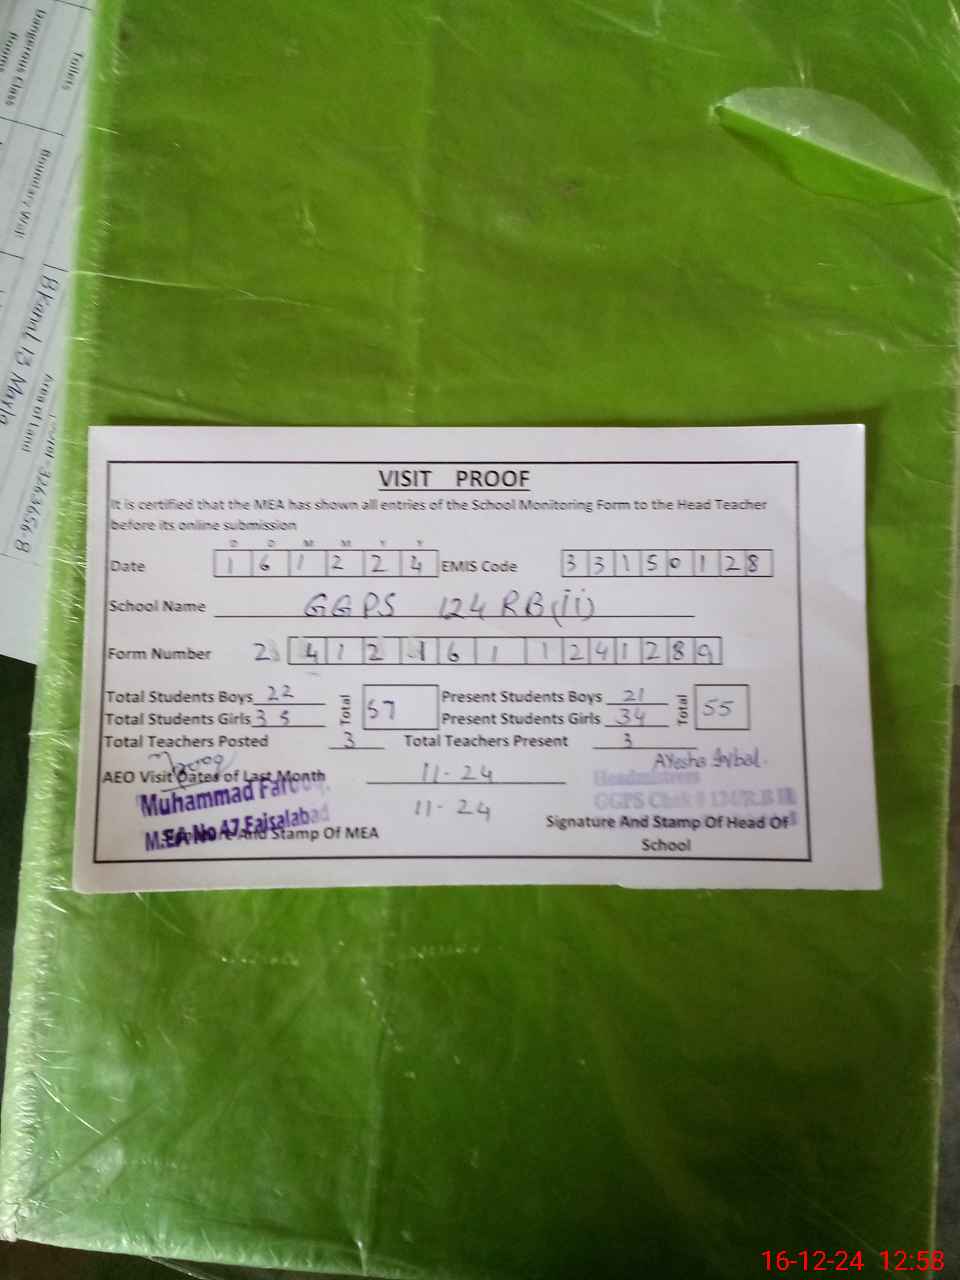 Toilets
Dangerous Class
Rooms
Boundary Wall
8 Kanal 13 Marla
Area of Land
VISIT PROOF
It is certified that the MEA has shown all entries of the School Monitoring Form to the Head Teacher
before its online submission
D D M M Y Y
Date 1 6 1 2 2 4 EMIS Code 3 3 1 5 0 1 2 8
School Name GGPS 124 RB (ii)
Form Number 2 4 1 2 1 6 1 1 2 4 1 2 8 9
Total Students Boys 22 Total 57 Present Students Boys 21 Total 55
Total Students Girls 35 Present Students Girls 34
Total Teachers Posted 3 Total Teachers Present 3
Ayesha Iqbal.
AEO Visit Dates of Last Month 11-24 Headmistress
Muhammad Farooq 11-24 GGPS Chak # 124/R.B II
M.E.A No 47 Faisalabad
And Stamp Of MEA Signature And Stamp Of Head Of
School
16-12-24 12:58